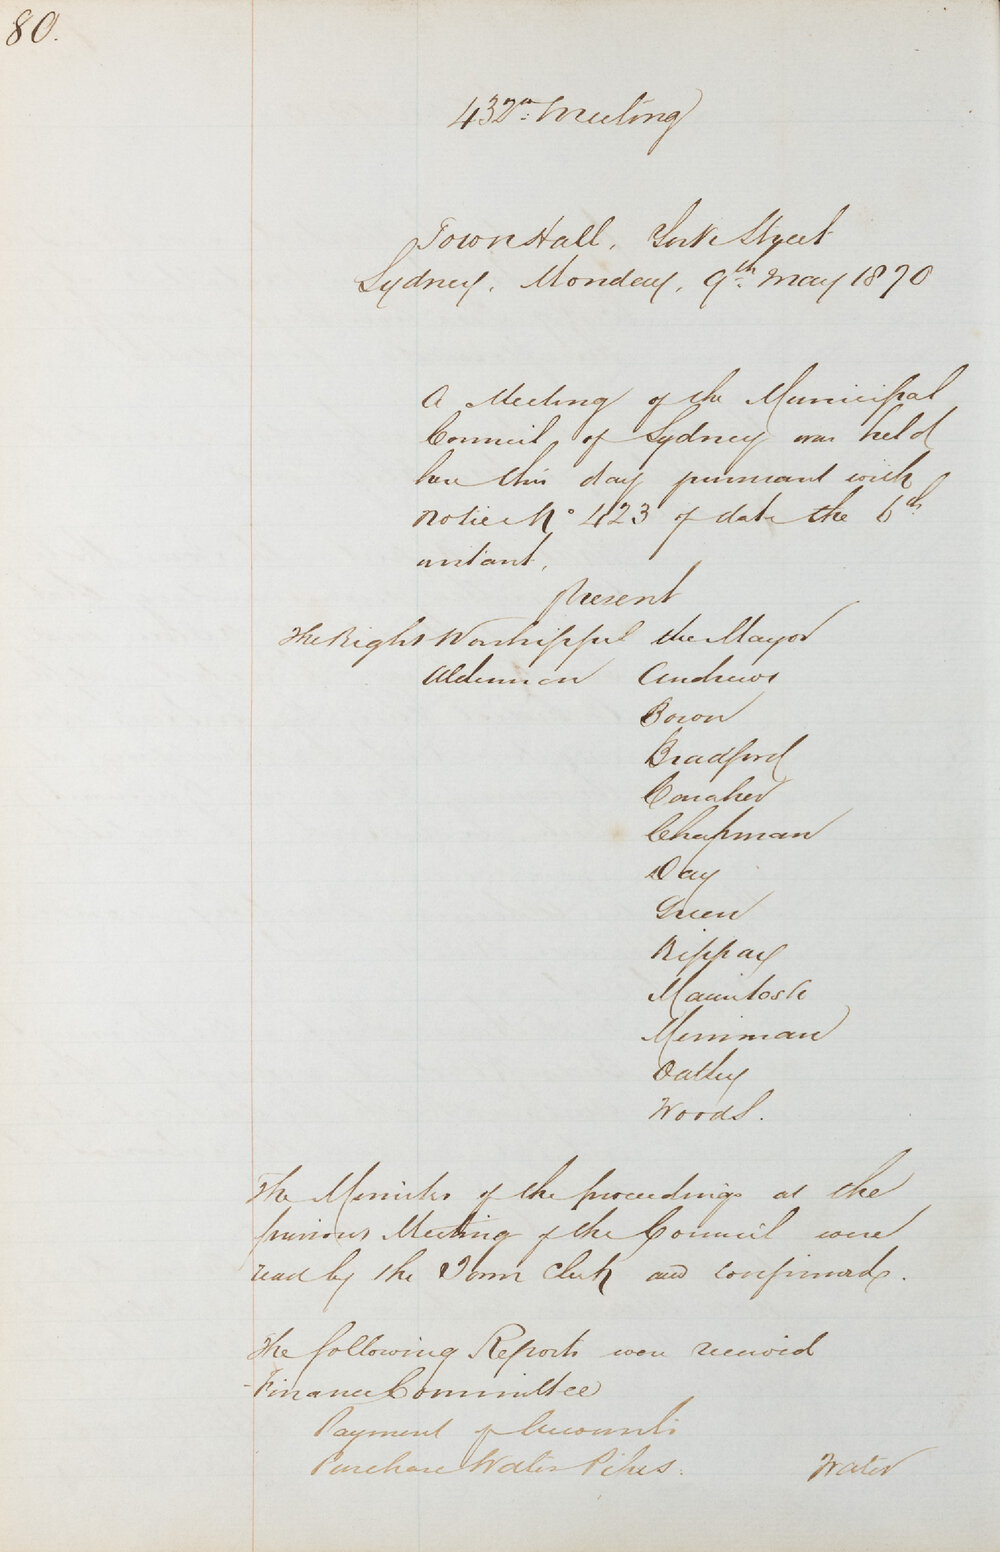 80.
432nd Meeting
Town Hall, York Street
Sydney, Monday, 9th May 1870
A Meeting of the Municipal
Council of Sydney was held
here this day pursuant with
Notice No 423 of date the 6th
instant.
Present
The Right Worshipful the Mayor
Alderman Andrews
Bown
Bradford
Conaher
Chapman
Day
Green
Kippax
Macintosh
Merriman
Oatley
Woods.
The Minutes of the proceedings at the
previous Meeting of the Council were
read by the Town Clerk and confirmed.
The following Reports were received
Finance Committee
Payment of Accounts
Purchase Water Pipes.
Water